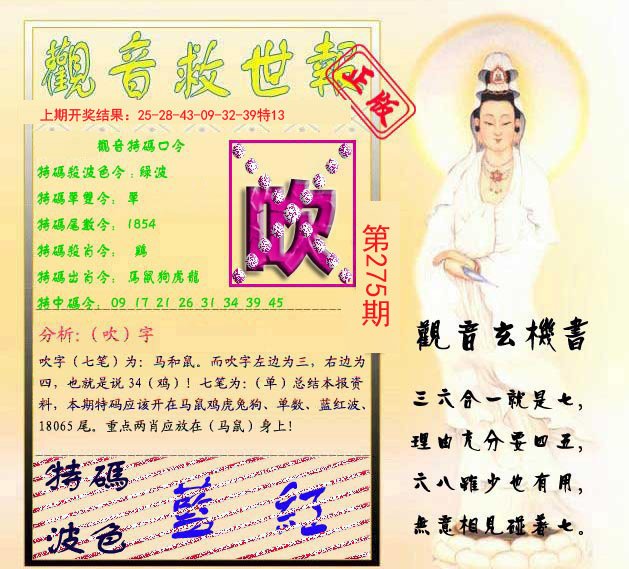 觀音救世報
正版
上期开奖结果：25-28-43-09-32-39特13
觀音特碼口令
特碼殺波色令：綠波
特碼單雙令： 單
特碼尾數令： 1854
特碼殺肖令： 鷄
特碼出肖令： 馬鼠狗虎龍
特中碼令： 09 17 21 26 31 34 39 45
吹
第275期
分析：（吹）字
吹字（七笔）为：马和鼠。而吹字左边为三，右边为
四，也就是说 34（鸡）！七笔为：（单）总结本报资
料，本期特码应该开在马鼠鸡虎兔狗、单数、蓝红波、
18065 尾。重点两肖应放在（马鼠）身上！
特碼
波色
藍 紅
觀音玄機書
三六合一就是七，
理由充分要四五，
六八雖少也有用，
無意相見碰着七。